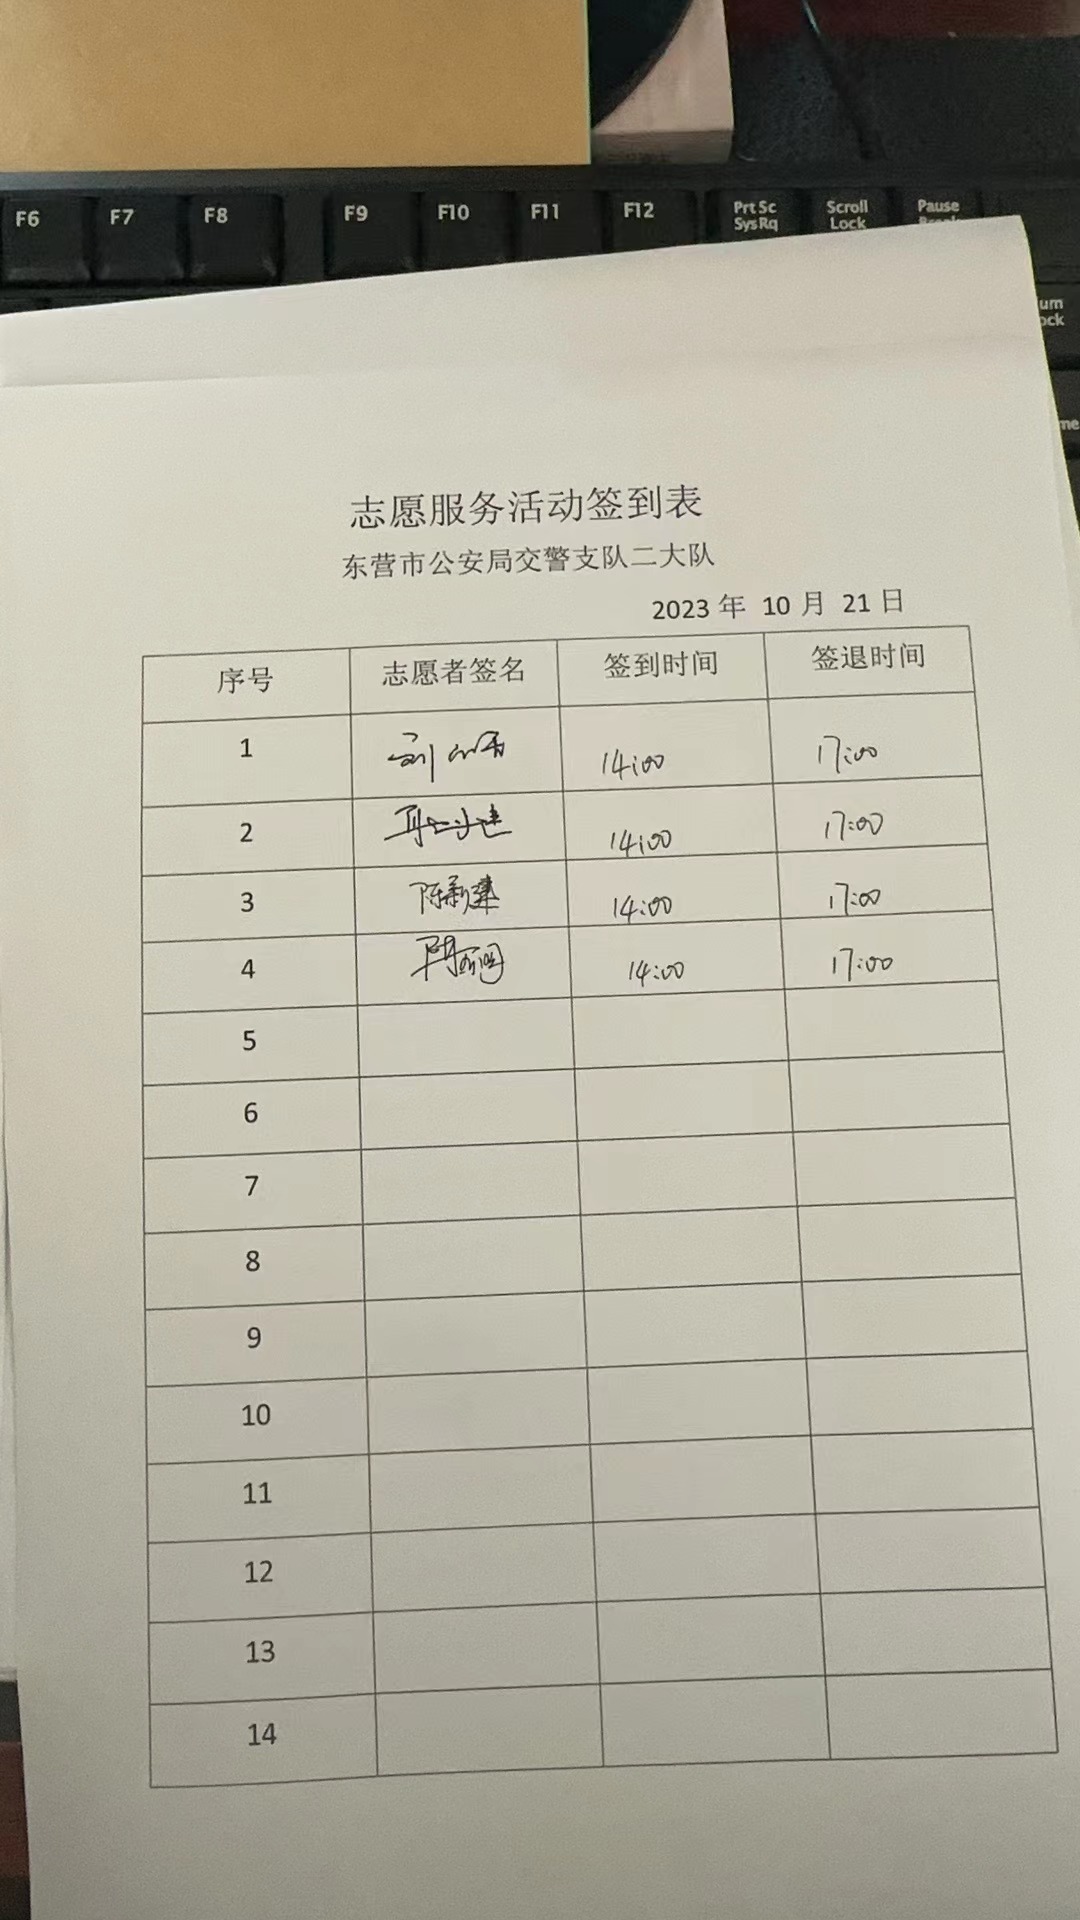 F6 F7 F8 F9 F10 F11 F12 Prt Sc Scroll Pause
SysRq Lock
志愿服务活动签到表
东营市公安局交警支队二大队
2023 年 10 月 21 日
序号 志愿者签名 签到时间 签退时间
1 14:00 17:00
2 14:00 17:00
3 陈新建 14:00 17:00
4 14:00 17:00
5
6
7
8
9
10
11
12
13
14